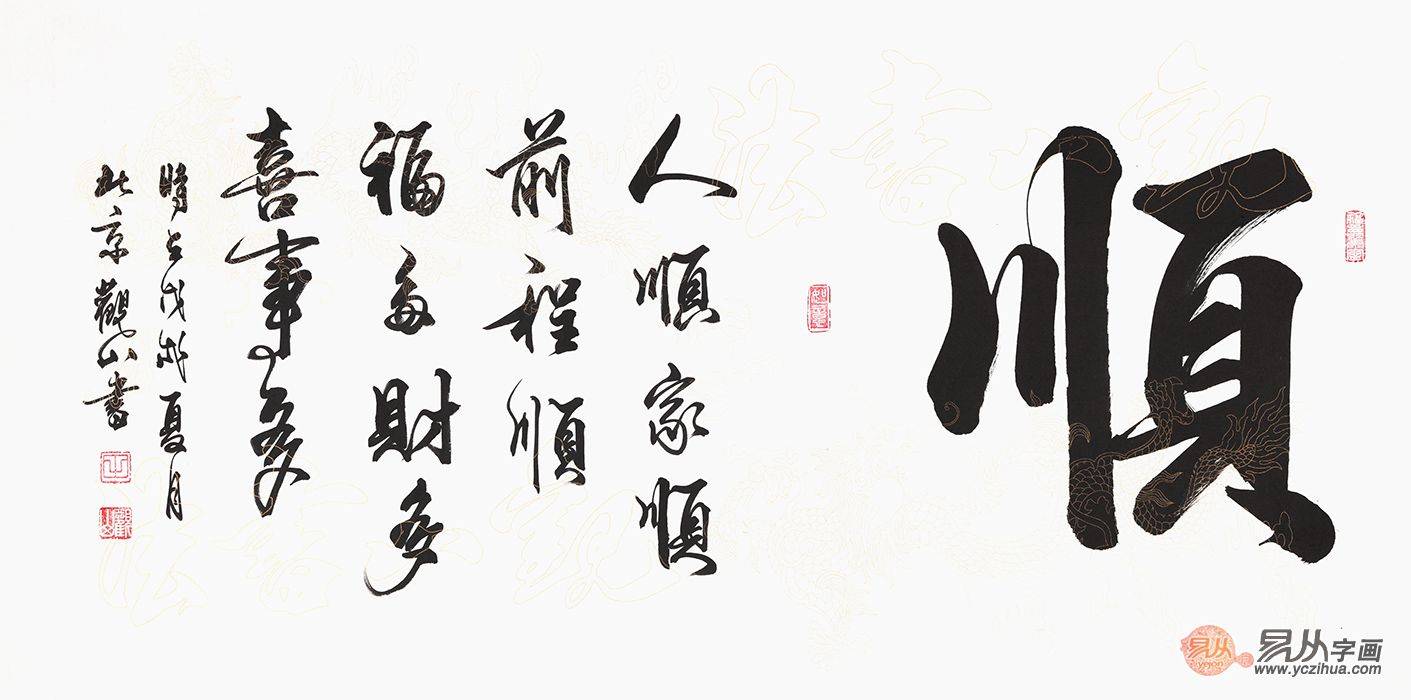 順
人順家順
前程順
福多財多
喜事多
時在戊戌夏月
北京觀山書
易从
yejon
易从字画
www.yczihua.com